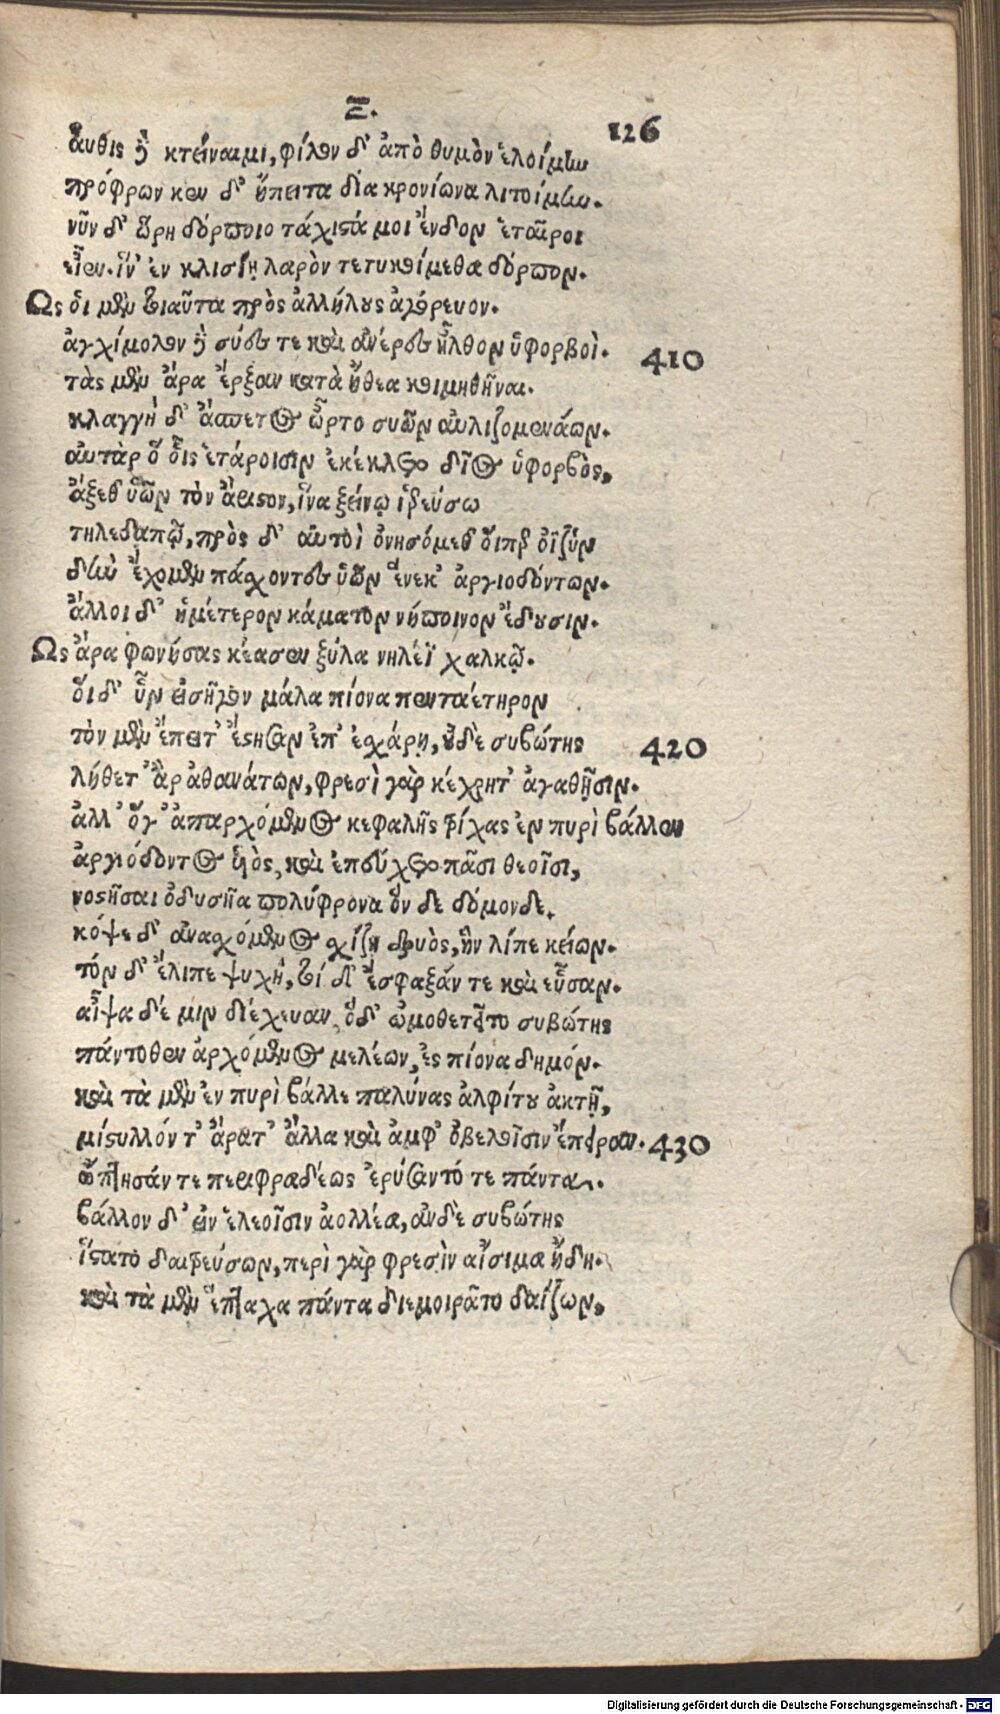 Ξ.
126
αὖθις δὲ κτείναιμι, φίλον δ' ἀπὸ θυμὸν ἑλοίμην
πρόφρων κεν δ' ἤπειτα δία κρονίωνα λιτοίμην.
νῦν δ' ὥρη δόρποιο τάχιστά μοι ἔνδον ἑταῖροι
εἶεν. ἵν' ἐν κλισίῃ λαρὸν τετυκοίμεθα δόρπον.
Ως ὁι μὲν τοιαῦτα πρὸς ἀλλήλους ἀγόρευον.
ἀγχίμολον δὲ σύες τε καὶ ἀνέρες ἦλθον ὑφορβοὶ.
410
τὰς μὲν ἄρα ἔρξαν κατὰ ἤθεα κοιμηθῆναι.
κλαγγὴ δ' ἄσπετος ὦρτο συῶν αὐλιζομενάων.
αὐτὰρ ὅ οἷς ἑτάροισιν ἐκέκλετο δῖος ὑφορβὸς,
ἄξεθ' ὑῶν τὸν ἄριστον, ἵνα ξείνῳ ἱρεύσω
τηλεδαπῷ, πρὸς δ' αὐτοὶ ὀνησόμεθ' οἵπερ ὀϊζὺν
δὴν ἔχομεν πάσχοντες ὑῶν ἕνεκ' ἀργιοδόντων.
ἄλλοι δ' ἡμέτερον κάματον νήποινον ἔδουσιν.
Ως ἄρα φωνήσας κέασεν ξύλα νηλέϊ χαλκῷ.
οἵ δ' ὗν εἰσῆγον μάλα πίονα πενταέτηρον
τὸν μὲν ἔπειτ' ἔστησαν ἐπ' ἐσχάρῃ, οὐδὲ συβώτης
420
λήθετ' ἂρ ἀθανάτων, φρεσὶ γὰρ κέχρητ' ἀγαθῇσιν.
ἀλλ' ὅγ' ἀπαρχόμενος κεφαλῆς τρίχας ἐν πυρὶ βάλλεν
ἀργιόδοντος ὑὸς, καὶ ἐπεύχετο πᾶσι θεοῖσι,
νοστῆσαι ὀδυσῆα πολύφρονα ὅν δε δόμονδε.
κόψε δ' ἀνασχόμενος σχίζῃ δρυὸς, ἣν λίπε κείων.
τόν δ' ἔλιπε ψυχή, τοί δ' ἔσφαξάν τε καὶ εὗσαν.
αἶψα δέ μιν διέχευαν, ὅδ' ὠμοθετεῖτο συβώτης
πάντοθεν ἀρχόμενος μελέων, ἐς πίονα δημόν.
καὶ τὰ μὲν ἐν πυρὶ βάλλε παλύνας ἀλφίτου ἀκτῇ,
μίστυλλόν τ' ἄρατ' ἄλλα καὶ ἀμφ' ὀβελοῖσιν ἔπειραν.
430
ὤπτησάν τε περιφραδέως ἐρύσαντό τε πάντα.
βάλλον δ' εἰν ἐλεοῖσιν ἀολλέα, ἀνδὲ συβώτης
ἵστατο δαιτρεύσων, περὶ γὰρ φρεσὶν αἴσιμα ᾔδη.
καὶ τὰ μὲν ἕπταχα πάντα διεμοιρᾶτο δαΐζων,
Digitalisierung gefördert durch die Deutsche Forschungsgemeinschaft - DFG